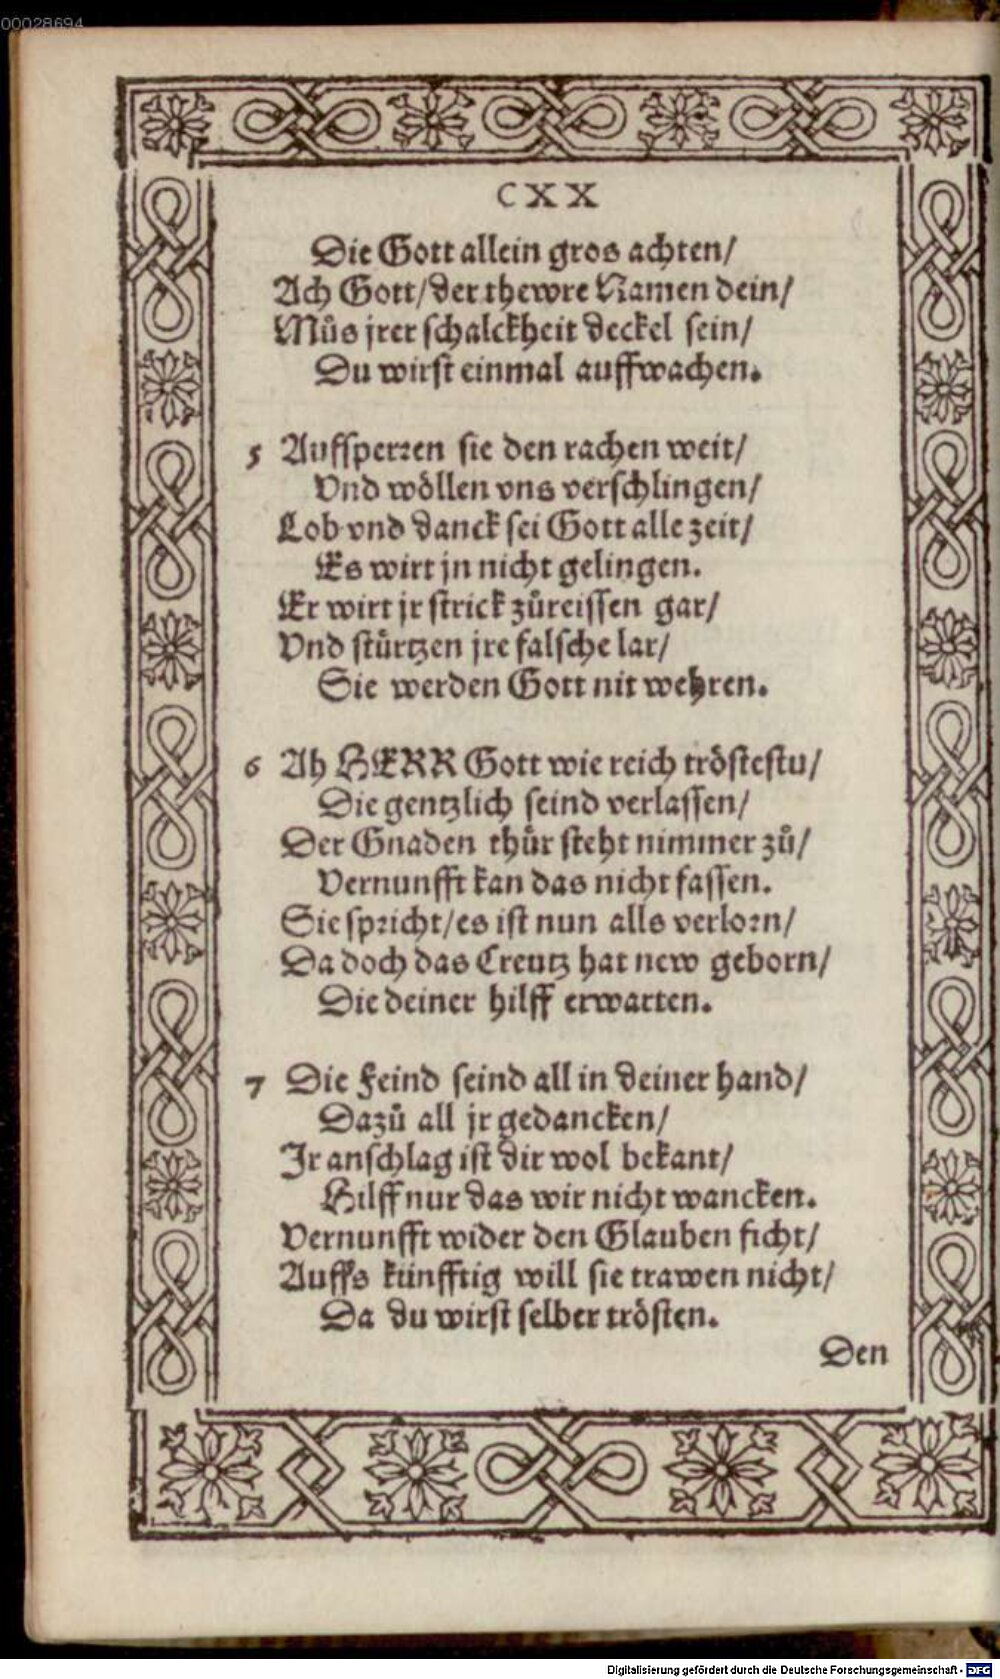 00028694
CXX
Die Gott allein gros achten/
Ach Gott/der thewre Namen dein/
Muͦs jrer schalckheit deckel sein/
Du wirst einmal auffwachen.
5 Auffsperren sie den rachen weit/
Vnd woͤllen vns verschlingen/
Lob vnd danck sei Gott alle zeit/
Es wirt jn nicht gelingen.
Er wirt jr strick zuͦreissen gar/
Vnd stuͤrtzen jre falsche lar/
Sie werden Gott nit wehren.
6 Ah HERR Gott wie reich troͤstestu/
Die gentzlich seind verlassen/
Der Gnaden thuͤr steht nimmer zuͦ/
Vernunfft kan das nicht fassen.
Sie spricht/es ist nun alls verlorn/
Da doch das Creutz hat new geborn/
Die deiner hilff erwarten.
7 Die Feind seind all in deiner hand/
Dazuͦ all jr gedancken/
Jr anschlag ist dir wol bekant/
Hilff nur das wir nicht wancken.
Vernunfft wider den Glauben ficht/
Auffs kuͤnfftig will sie trawen nicht/
Da du wirst selber troͤsten.
Den
Digitalisierung gefördert durch die Deutsche Forschungsgemeinschaft - DFG